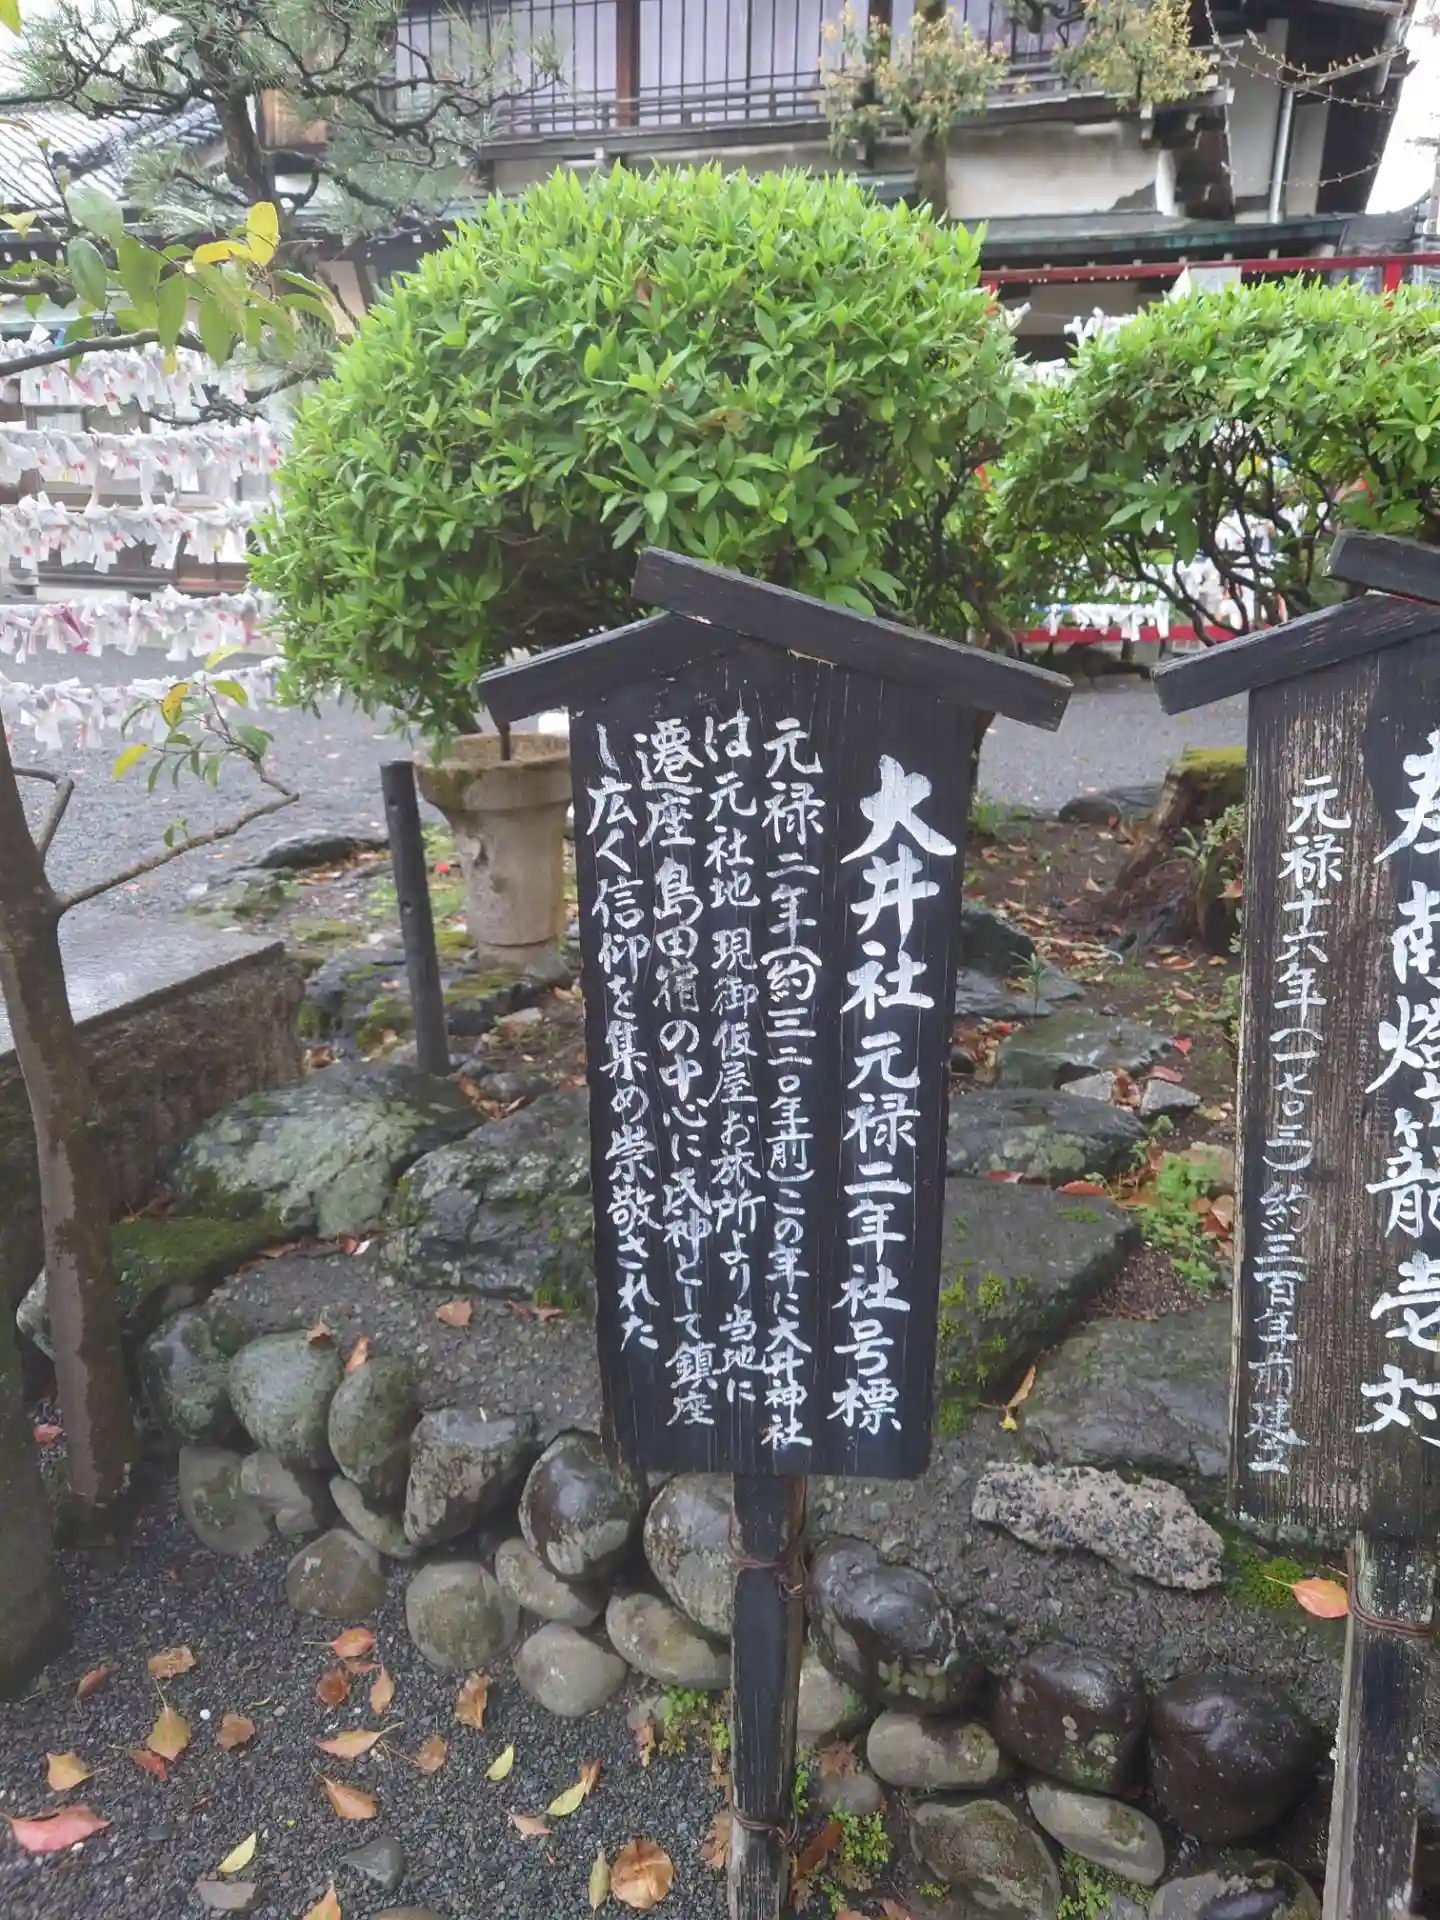 大井社元禄二年社号標
元禄二年(約三二〇年前)この年に大井神社
は元社地 現御仮屋お旅所より当地に
遷座 島田宿の中心に氏神として鎮座
し広く信仰を集め崇敬された
燈籠壱対
元禄十六年(一七〇三)約三百年前建立